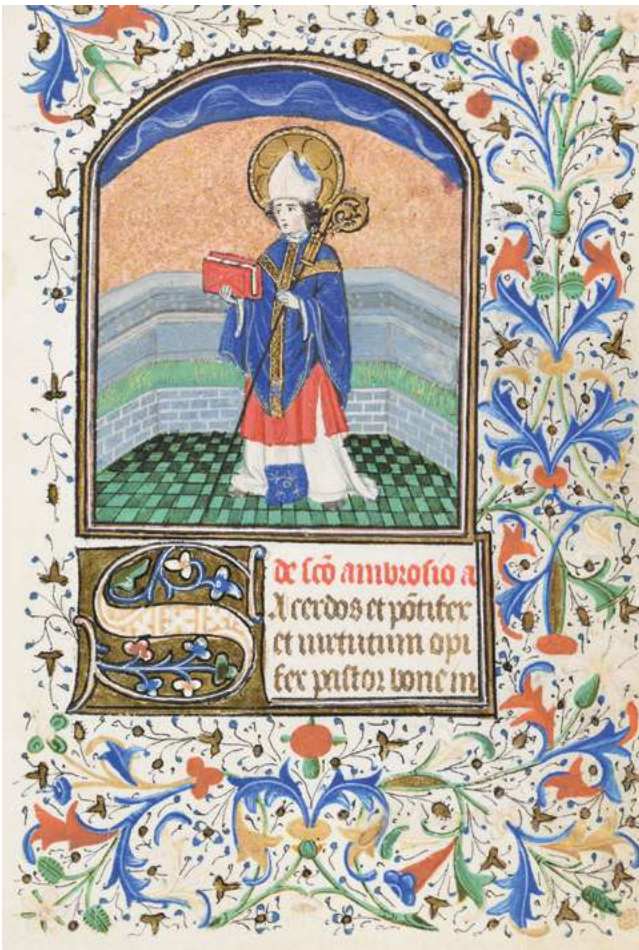 de scō ambrosio a
Sacerdos et pōtifex
et uirtutum opi
fex pastor bone in